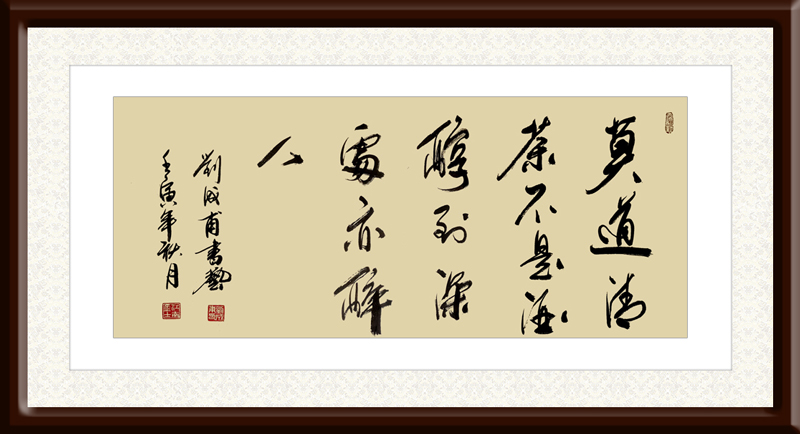 莫道清
茶不是酒
醇到深
處亦醉
人
劉成甫書藝
壬寅年秋月